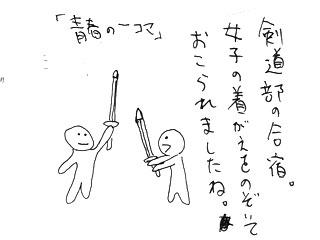 「青春の一コマ」
剣道部の合宿。
女子の着がえをのぞいて
おこられましたね。